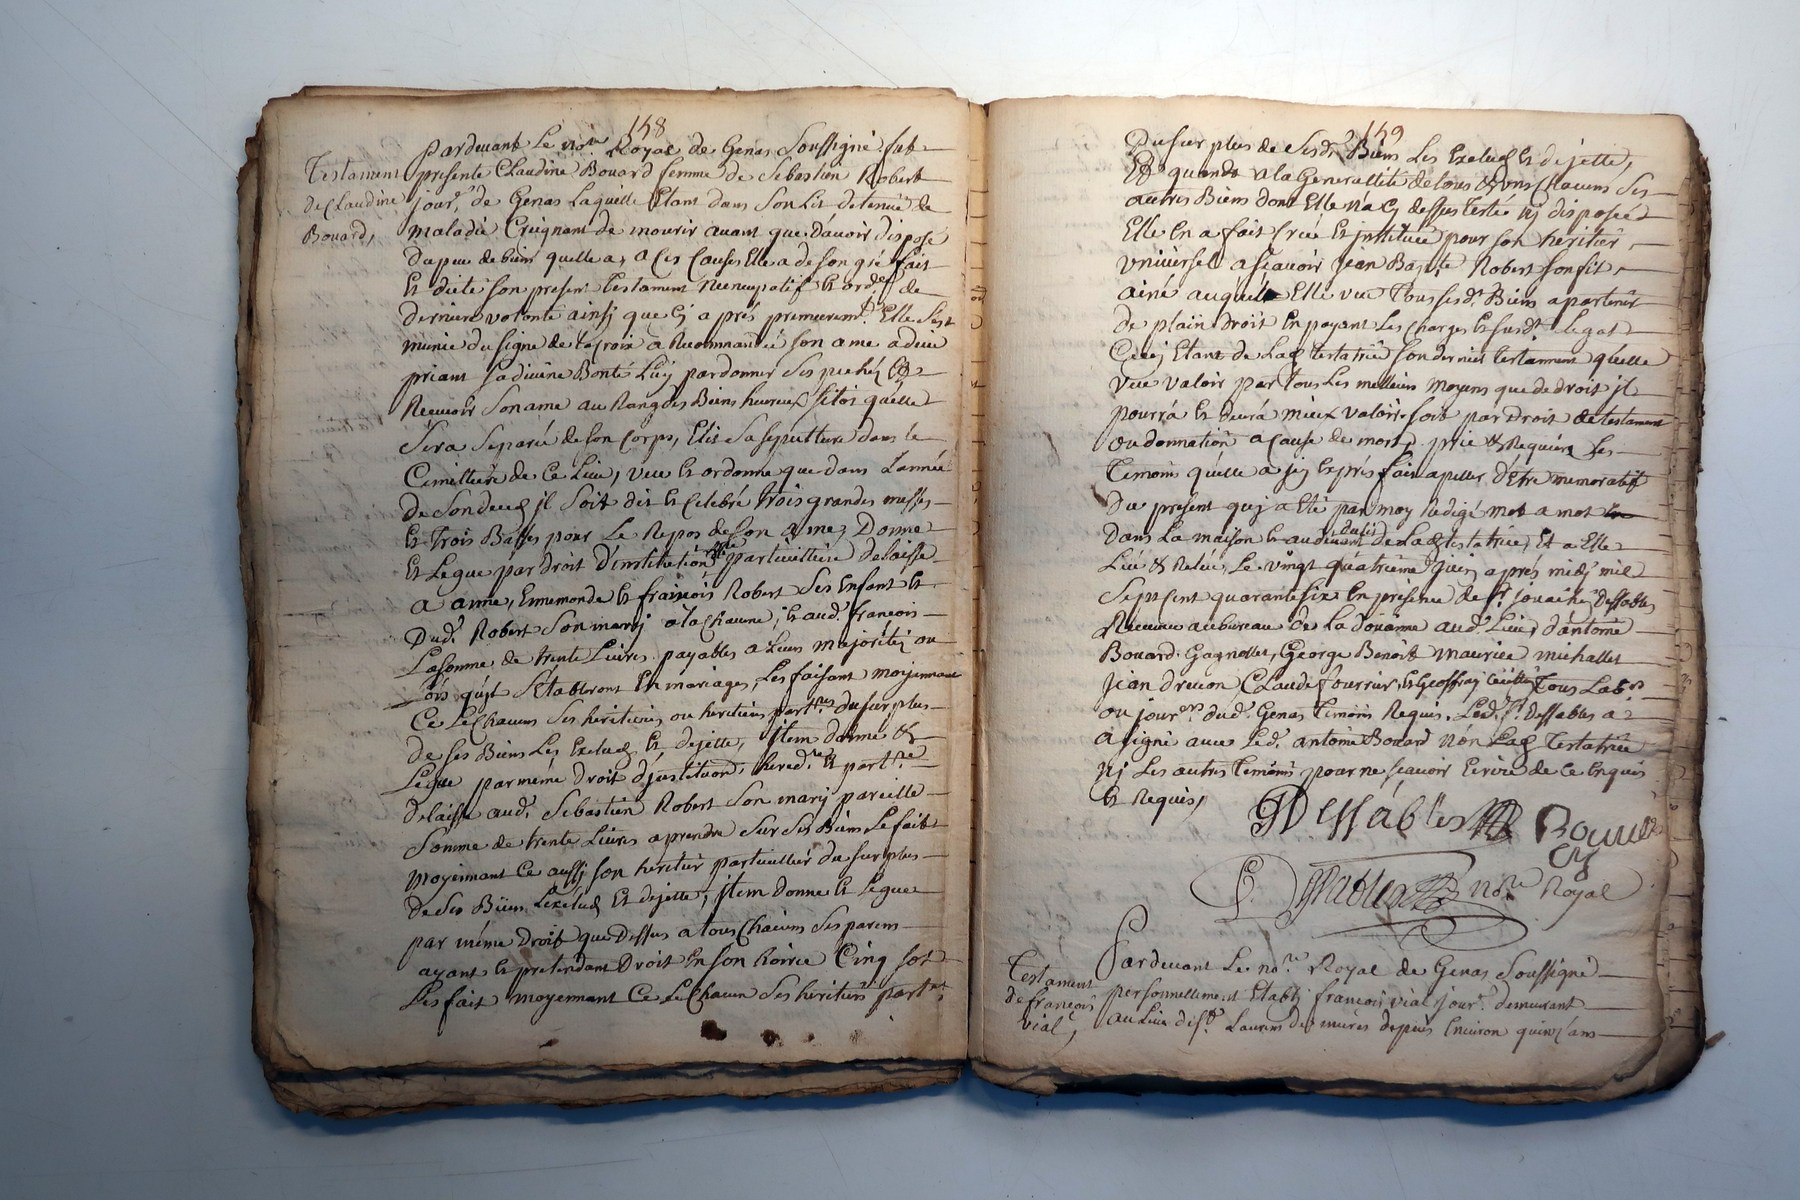 148
Testament
de Claudine
Bouard,
pardevant Le no.re Royal de Genas Soussigné fut
presente Claudine Bouard femme de Sebastien Robert
jour.r de Genas Laquelle Etant dans Son Lit detenue de
maladie Creignant de mourir avant que D'avoir disposé
du peu de bien quelle a, a Ces Causes Elle a de son gré fait
Et dicté son present testament nuncupatif Et ord.ce de
derniere volonté ainsy que Cy aprés premierem.t Elle S'est
munie du signe de la Croix a Recommandé son ame a dieu
priant sa divine Bonté Luy pardonner Ses pechéz Et
Recevoir Son ame au Rang des Biens heureux sitot quelle
Sera Separée de son Corps, Elit Sa sepulture dans le
Cimittiere de Ce Lieu, veut Et ordonne que dans L'année
de Son deceds il Soit dit Et Celebré trois grandes messes
Et trois Basses pour Le Repos de Son ame, Donne
Et Legue par droit D'institution particuilliere delaisse
a anne, Ennemonde Et francois Robert Ses Enfant Et
Dud.t Robert Son mary a la Chacune, Et aud.t francois
La somme de trente Livres payables a Leurs majoritéz ou
Lors qu'jls S'établiront En mariages, Les faisant moyennant
Ce Et Chacun Ses heritieres ou heritiers part.res du surplus
de ses Biens Les Exclud Et dejette, jtem donne Et
Legue par meme droit d'jnstitution, hered.re Et part.re
delaisse aud.t Sebastien Robert Son mary pareille
Somme de trente Livres a prendre Sur Ses Biens Le fait
moyennant Ce aussy son heritier particuillier du surplus
de Ses Biens L'exclud Et dejette, jtem donne Et Legue
par même droit que Dessus a tous Chacuns Ses parens
ayant Et pretendant Droit En son hoirie Cinq sols
Les fait moyennant Ce Et Chacun Ses heritiers part.rs
149
Du surplus de Sesd.t Biens Les Exclud Et dejette,
Et quand a la Generallité de tous Et uns Chacuns Ses
autres Biens dont Elle n'a Cy dessus testé ny disposé
Elle En a fait Créé Et jnstitué pour son heritier
universel a sçavoir jean Baptiste Robert son fils
ainé auquel Elle veut Tous sesd.t Biens apartenir
De plain Droit En payant Les Charges Et susd.t Legat
Cecy Etant de Lad. testatrice Son dernier testament qu'elle
veut valoir par tous Les meilleurs moyens que de droit jl
pourra Et devra mieux valoir. soit par Droit de testament
ou donnation a Cause de mort, prie Et Requiert Les
Temoins qu'elle a jcy Exprés fait apeller D'Etre memoratif
Du present quj a Eté par moy Redigé mot a mot
dans La maison Et au domicile de Lad. testatrice, Et a Elle
Lû Et Relu, Le vingt quatrieme juin aprés midy mil
Sept Cent quarante six En présence de S.r Dessables
Receveur au bureau de La doüanne aud.t Lieu, d'antoine
Bouard. Gagnollet, George Benoit maurice michallet
Jean drevon Claude fourrier, Et Geoffray Tous Lab.rs
ou jour.ers dud.t Genas Temoins Requis. Led.t S.r Dessables a
a signé avec Led.t antoine Bouard non Lad. Testatrice
Nj Les autres temoins pour ne sçavoir Ecrire de Ce Enquis
Et Requis,
Dessables Bouard
no.re Royal
Testament
de francois
vial,
Pardevant Le no.re Royal de Genas Soussigné
personnellement Etably francois vial jour.r demeurant
au Lieu de S.t Laurens de mures depuis Environ quinz'ans